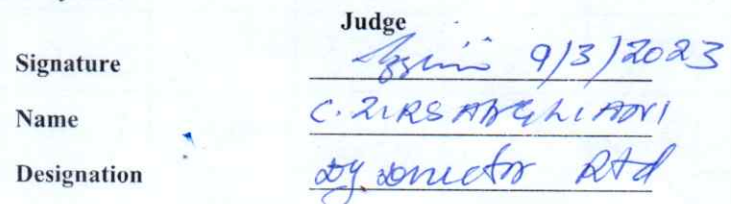 Judge
Signature 9/3/2023
Name C. ZIRSANGLIANI
Designation Dy Director Rtd